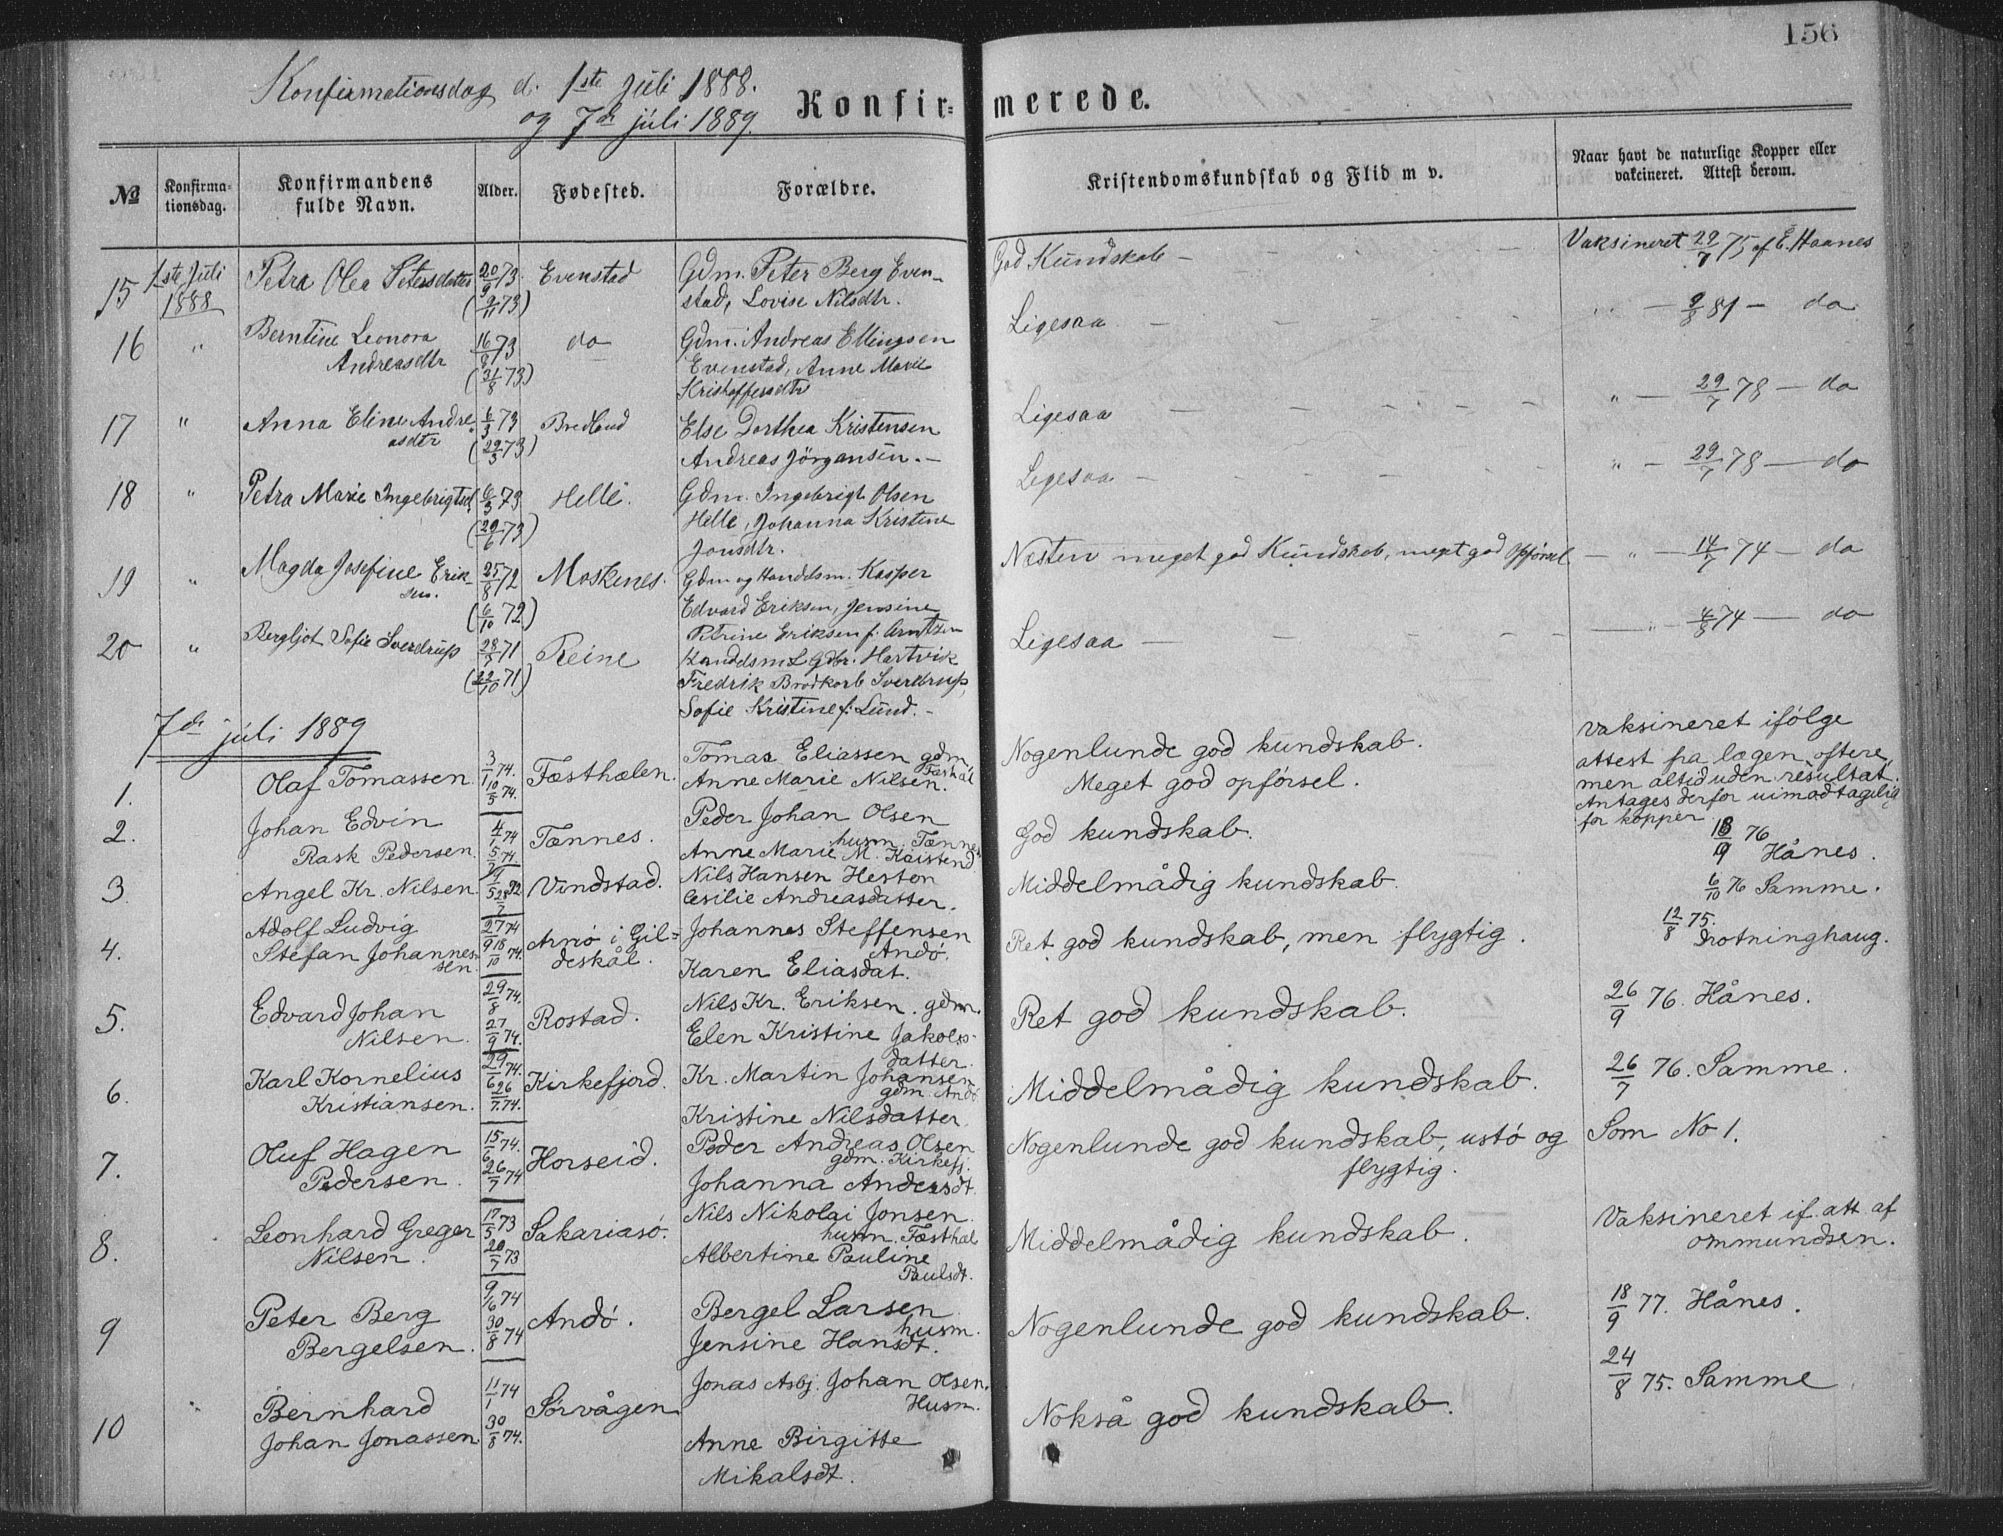 156
Konfirmationsdag d. 1ste Juli 1888.
og 7de juli 1889.
Konfir= merede.
No
Konfirma=
tionsdag.
Konfirmandens
fulde Navn.
Alder.
Fødested.
Forældre.
Kristendomskundskab og Flid m v.
Naar havt de naturlige Kopper eller
vakcineret. Attest derom.
15 1ste Juli 1888 Petra Olea Petersdatter 20/9 73 (9/11 73) Evenstad
Gdm. Peter Berg Even-
stad, Lovise Nilsdtr.
God Kundskab - Vaksineret 29/7 75 af E. Haanes
16 " Berntine Leonora
Andreasdtr
(31/8 73)
do
Gdm. Andreas Ellingsen
Evenstad, Anne Marie
Kristoffersdtr
Ligesaa - 9/8 81 - do
17 " Anna Eline Andre-
asdtr
6/3 73
Else Dorthea Kristensen
Andreas Jörgensen. -
Ligesaa " - 29/7 78 - do
18 " Petra Marie Ingebrigtsd. 6/3 73 (29/6 73) Helle.
Gdm. Ingebrigt Olsen
Helle, Johanna Kristine
Jonsdtr.
Ligesaa " - 29/7 78 - do
19 " Magda Josefine Erik-
sen.
25/8 72
(6/10 72)
Moskenes.
Gdm og Handdsm. Kasper
Edvard Eriksen, Jensine
Petrine Eriksen f. Arntzen
Nesten meget god Kundskab, meget god Opförsel - " - 14/7 74 - do
20 " Bergljot Sofie Sverdrup 71 (22/10 71) Reine
Handdsm & Gdbr. Hartvik
Fredrik Brodkorb Sverdrup,
Sofie Kristine f. Lund. -
Ligesaa - " 74 - do
7de juli 1889
1. Olaf Tomassen. 3/1 74. 10/5 74. Fæsthælen.
Tomas Eliassen gdm.
Anne Marie Nilsen.
Nogenlunde god kundskab.
Meget god opförsel.
Vaksineret ifölge
attest fra lægen oftere,
men altid uden resultat.
Antages derfor uimodtagelig
for kopper
2. Johan Edvin
Rask Pedersen.
4/1 74
5/5 74.
Tænnes.
Peder Johan Olsen
husm. Tænnes
Anne Marie M.
God kundskab.
18/9 76
Hånes.
3. Angel Kr. Nilsen Vindstad.
Nils Hansen Heston
Cesilie Andreasdatter.
Middelmådig kundskab.
6/10 76 Samme.
4. Adolf Ludvig
Stefan Johannes-
sen
27/9 74
18/10 74.
Arnö i Gil=
deskål.
Johannes Steffensen
Andö.
Karen Eliasdat.
Ret god kundskab, men flygtig.
12/8 75.
Drotninghaug.
5. Edvard Johan
Nilsen.
29/8 74.
27/9 74.
Rostad.
Nils Kr. Eriksen. gdm.
Elen Kristine Jakobs-
datter.
Ret god kundskab.
26/9 76. Hånes.
6. Karl Kornelius
Kristiansen.
29/6 74.
26/7 74.
Kirkefjord.
Kr. Martin Johansen
gdm. Andö
Kristine Nilsdatter.
Middelmådig kundskab.
26/7 76. Samme.
7. Oluf Hagen
Pedersen.
15/6 74.
26/7 74
Horseid.
Peder Andreas Olsen
gdm. Kirkefj.
Johanna Andersdt.
Nogenlunde god kundskab, ustö og
flygtig.
Som No 1.
8. Leonhard Greger
Nilsen.
17/5 73
20/7 73
Sakariasö.
Nils Nikolai Jonsen
husm. Fæsthæl
Albertine Pauline
Paulsdt.
Middelmådig kundskab.
Vaksineret if. att af
Ommundsen.
9 Peter Berg
Bergelsen.
30/8 74
Andö.
Bergel Larsen
husm.
Jensine Hansdt.
Nogenlunde god kundskab.
18/9 77. Hånes.
10 Bernhard
Johan Jonassen
11/1 74
30/8 74.
Sörvågen
Jonas Asbj. Johan Olsen.
Husm.
Anne Birgitte
Mikalsdt.
Nokså god kundskab.
24/8 75. Samme